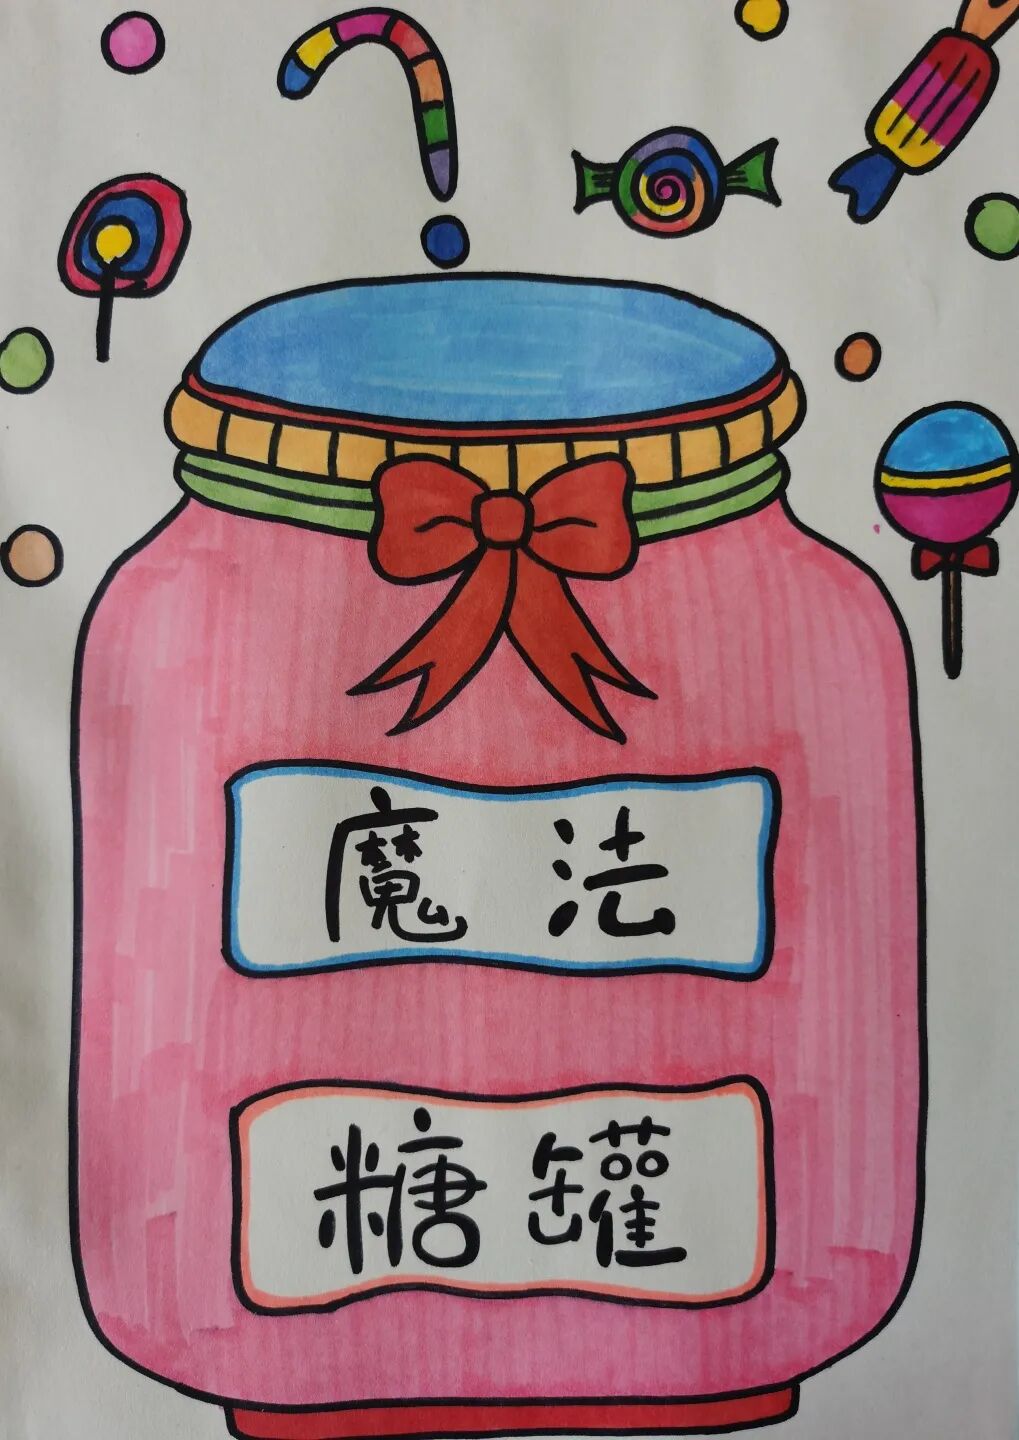 魔法
糖罐